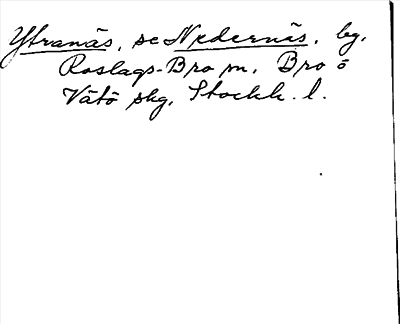 Ytranäs, se Nedernäs, by,
Roslags-Bro sn, Bro ö
Vätö skg, Stockh. l.